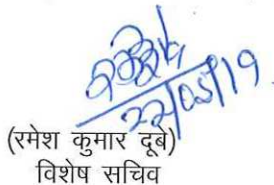 22/05/19
(रमेश कुमार दूबे)
विशेष सचिव